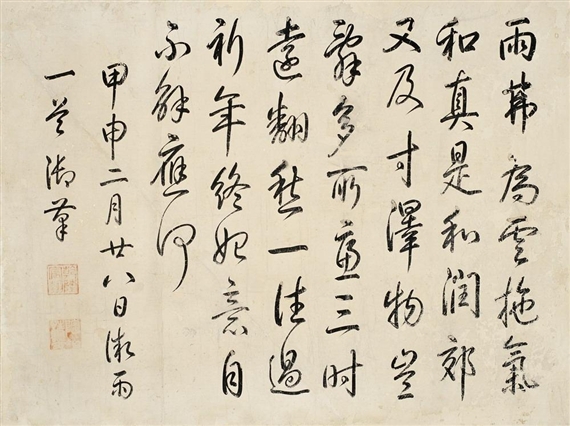 雨帶為雲拖氣
和真是和潤郊
又及寸澤物豈
辭多所慮三时
遠翻愁一往過
祈年終始意自
不解應何
甲申二月廿八日微雨
一首御筆